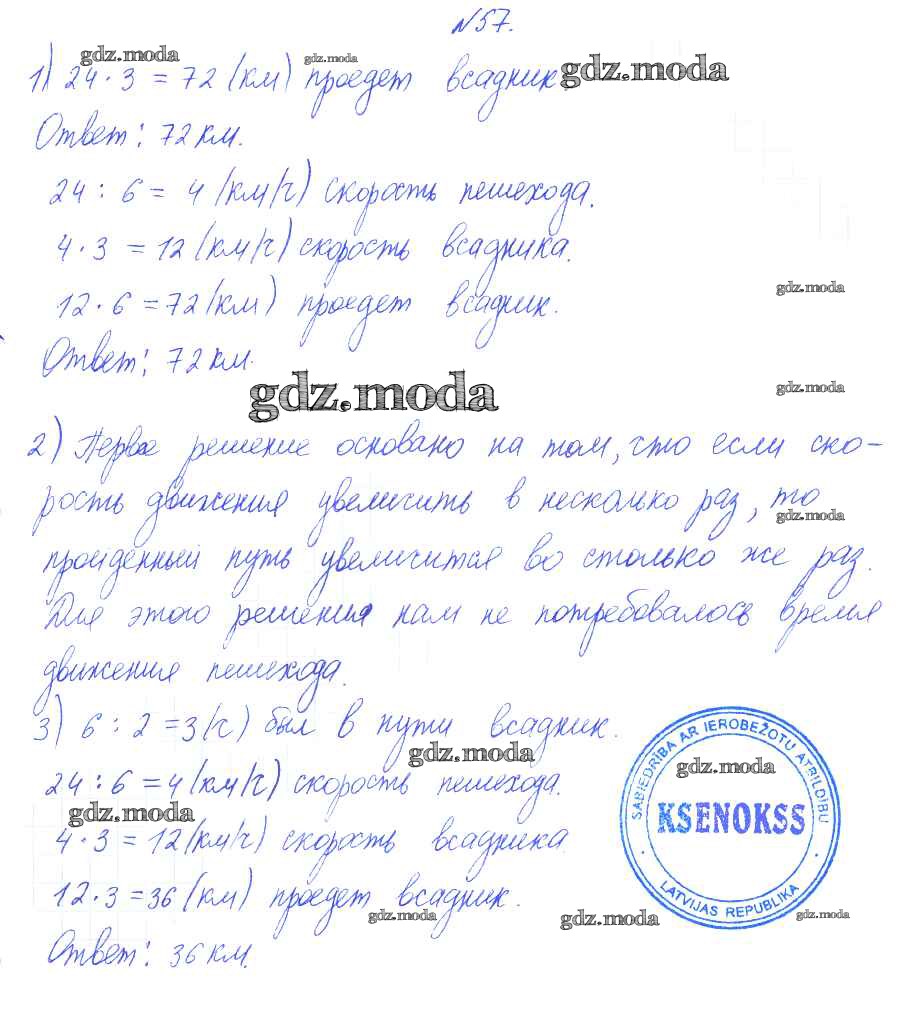 №57.
gdz.moda gdz.moda
1) 24·3 = 72 (км) проедет всадник. gdz.moda
Ответ: 72 км.
24 : 6 = 4 (км/ч) скорость пешехода.
4·3 = 12 (км/ч) скорость всадника.
gdz.moda
12·6 = 72 (км) проедет всадник.
Ответ: 72 км.
gdz.moda gdz.moda
2) Первое решение основано на том, что если ско-
рость движения увеличить в несколько раз, то
gdz.moda
пройденный путь увеличится во столько же раз.
Для этого решения нам не потребовалось время
движения пешехода.
3) 6 : 2 = 3 (ч) был в пути всадник.
gdz.moda
24 : 6 = 4 (км/ч) скорость пешехода.
gdz.moda
4·3 = 12 (км/ч) скорость всадника
12·3 = 36 (км) проедет всадник.
gdz.moda gdz.moda gdz.moda
Ответ: 36 км.
SABIEDRĪBA AR IEROBEŽOTU ATBILDĪBU
gdz.moda
KSENOKSS
LATVIJAS REPUBLIKA